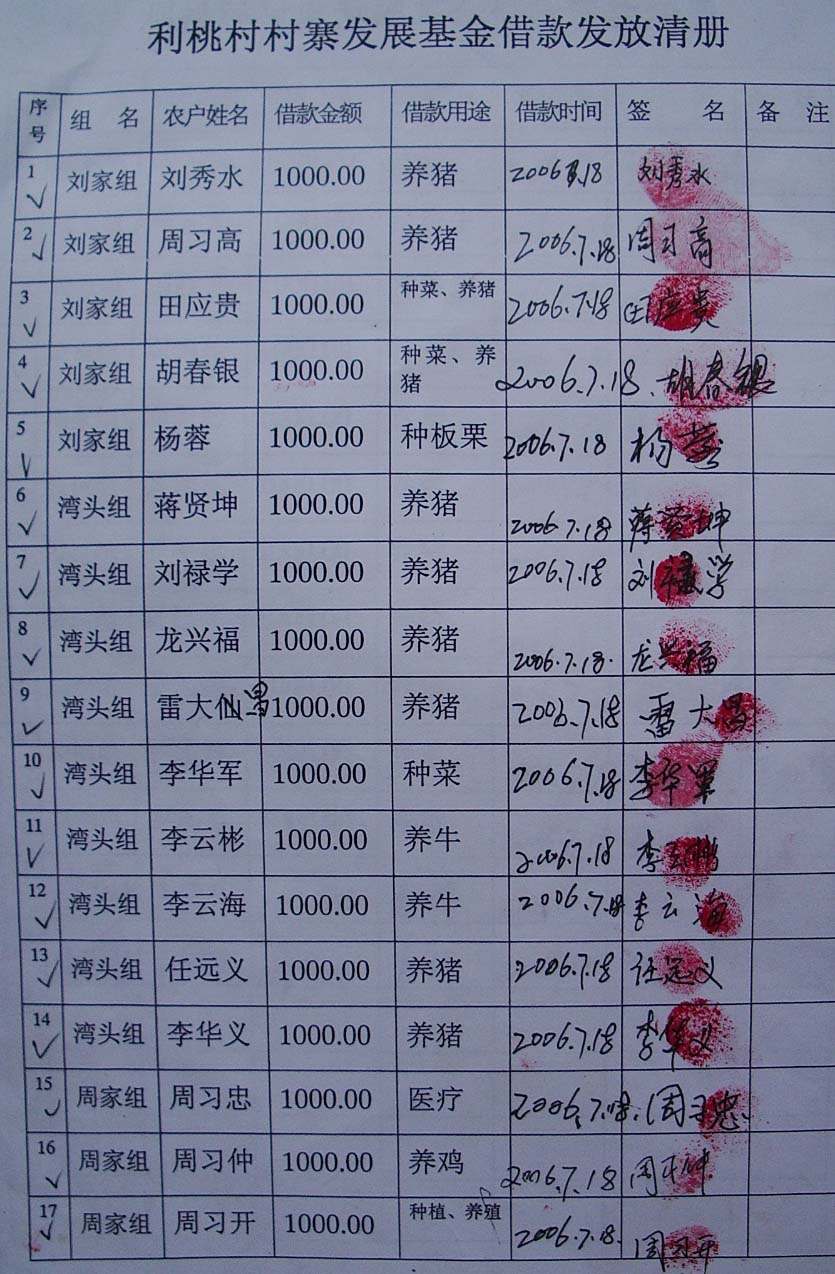 利桃村村寨发展基金借款发放清册
序号 组 名 农户姓名 借款金额 借款用途 借款时间 签 名 备 注
1 刘家组 刘秀水 1000.00 养猪 2006.7.18 刘秀水
2 刘家组 周习高 1000.00 养猪 2006.7.18 周习高
3 刘家组 田应贵 1000.00 种菜、养猪 2006.7.18 田应贵
4 刘家组 胡春银 1000.00 种菜、养猪 2006.7.18. 胡春银
5 刘家组 杨蓉 1000.00 种板栗 2006.7.18 杨蓉
6 湾头组 蒋贤坤 1000.00 养猪 2006.7.18 蒋贤坤
7 湾头组 刘禄学 1000.00 养猪 2006.7.18 刘禄学
8 湾头组 龙兴福 1000.00 养猪 2006.7.18. 龙兴福
9 湾头组 雷大仙昌 1000.00 养猪 2006.7.18 雷大昌
10 湾头组 李华军 1000.00 种菜 2006.7.18 李华军
11 湾头组 李云彬 1000.00 养牛 2006.7.18 李云
12 湾头组 李云海 1000.00 养牛 2006.7.18 李云海
13 湾头组 任远义 1000.00 养猪 2006.7.18 任远义
14 湾头组 李华义 1000.00 养猪 2006.7.18 李华义
15 周家组 周习忠 1000.00 医疗 2006.7.18. 周习忠
16 周家组 周习仲 1000.00 养鸡 2006.7.18 周习仲
17 周家组 周习开 1000.00 种植、养殖 2006.7.18. 周习开